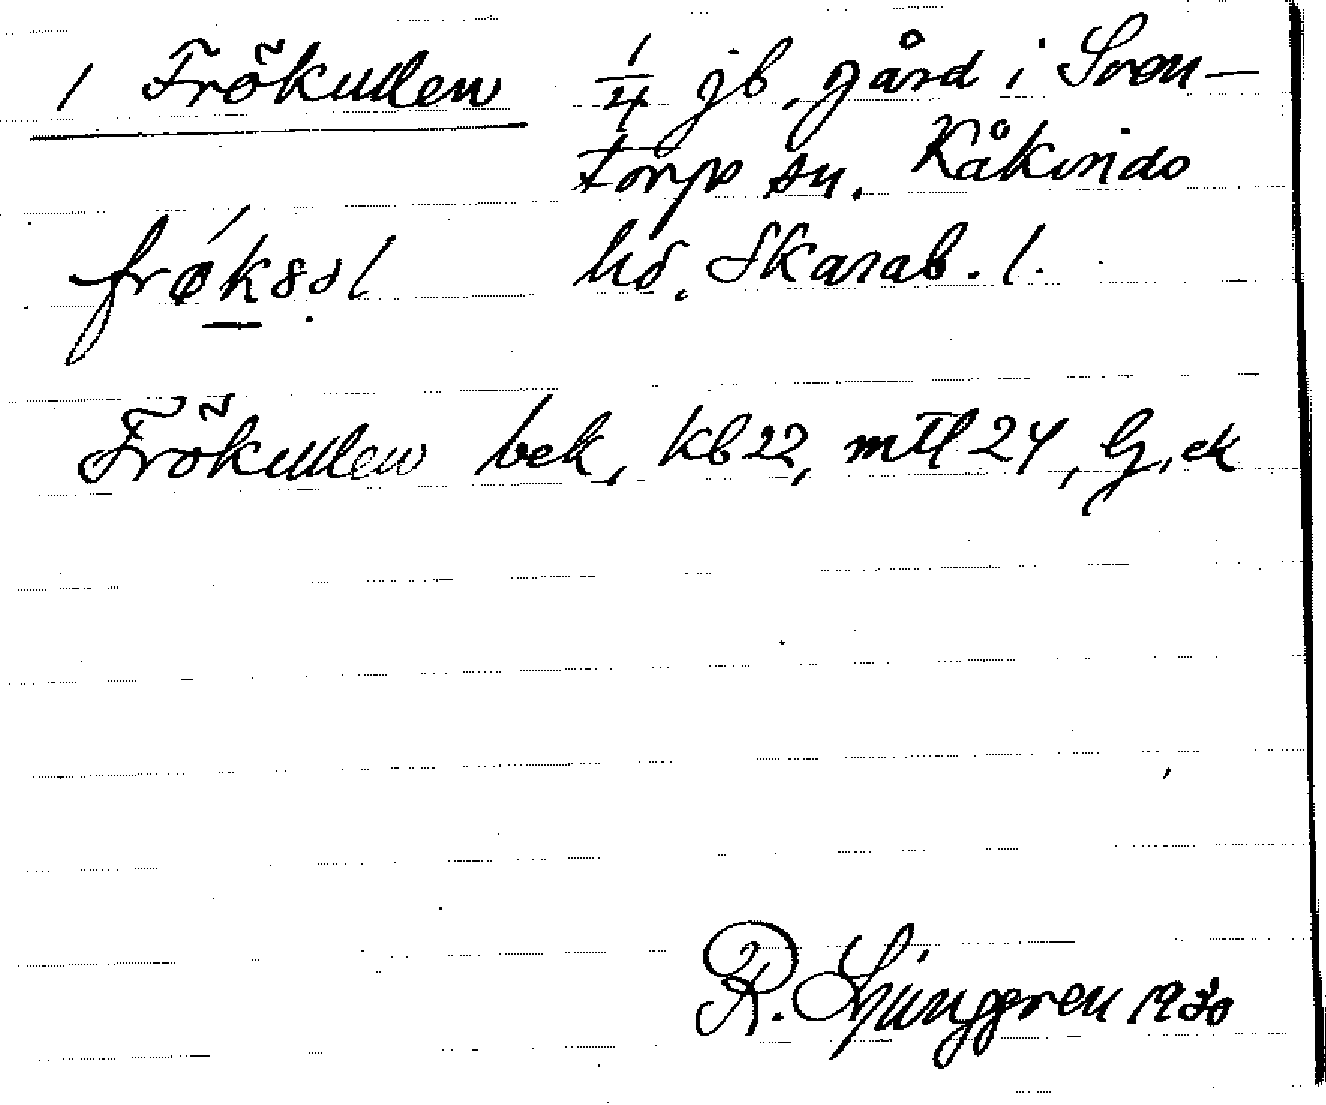 1 Frökullen ¼ jb. gård i Sven-
torps sn. Kåkinds
hd. Skarab. l.
Frökullen bek, kb 22, mtl 24, G, ek
R. Ljunggren 1930